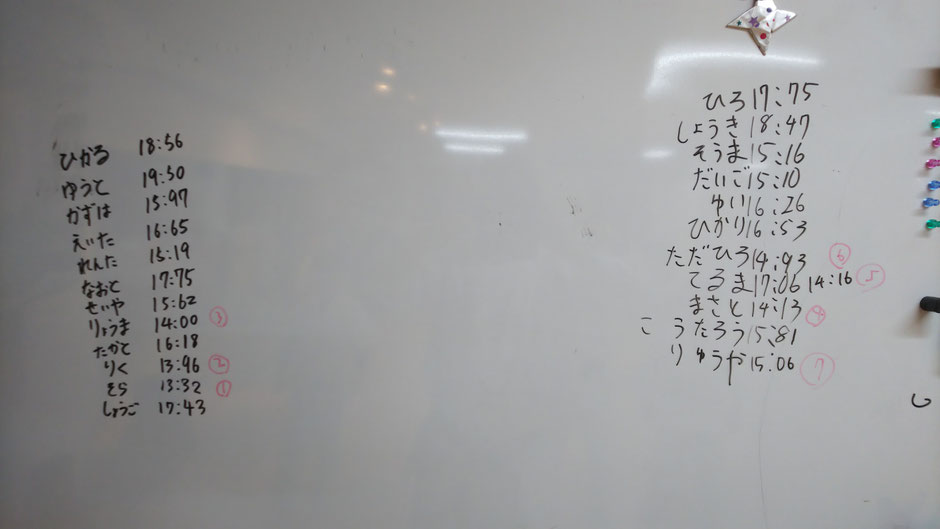 ひかる 18:56
ゆうと 19:50
かずは 15:97
えいた 16:65
れんた 15:19
なおと 17:75
せいや 15:62
りょうま 14:00 ③
たかと 16:18
りく 13:96 ②
そら 13:32 ①
しょうご 17:43
ひろ 17:75
しょうき 18:47
そうま 15:16
だいご 15:10
ゆい 16:26
ひかり 16:53
ただひろ 14:93 ⑥
てるま 17:06 14:16 ⑤
まさと 14:13 ④
こうたろう 15:81
りゅうや 15:06 ⑦